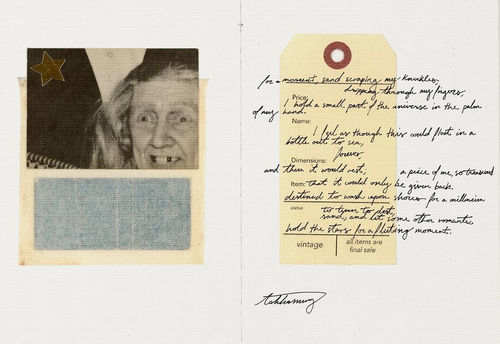 for a moment, sand scraping my knuckles,
dripping through my fingers,
Price:
I hold a small part of the universe in the palm
of my hand.
Name:
I feel as though this would float in a
bottle out to sea,
Dimensions: forever,
and there it would rest, a piece of me, so
Item: that it could only be given back.
destined to wash upon shores for a millennia
status
to turn to dust,
sand, and let some other romantic
hold the stars for a fleeting moment.
vintage
all items are
final sale